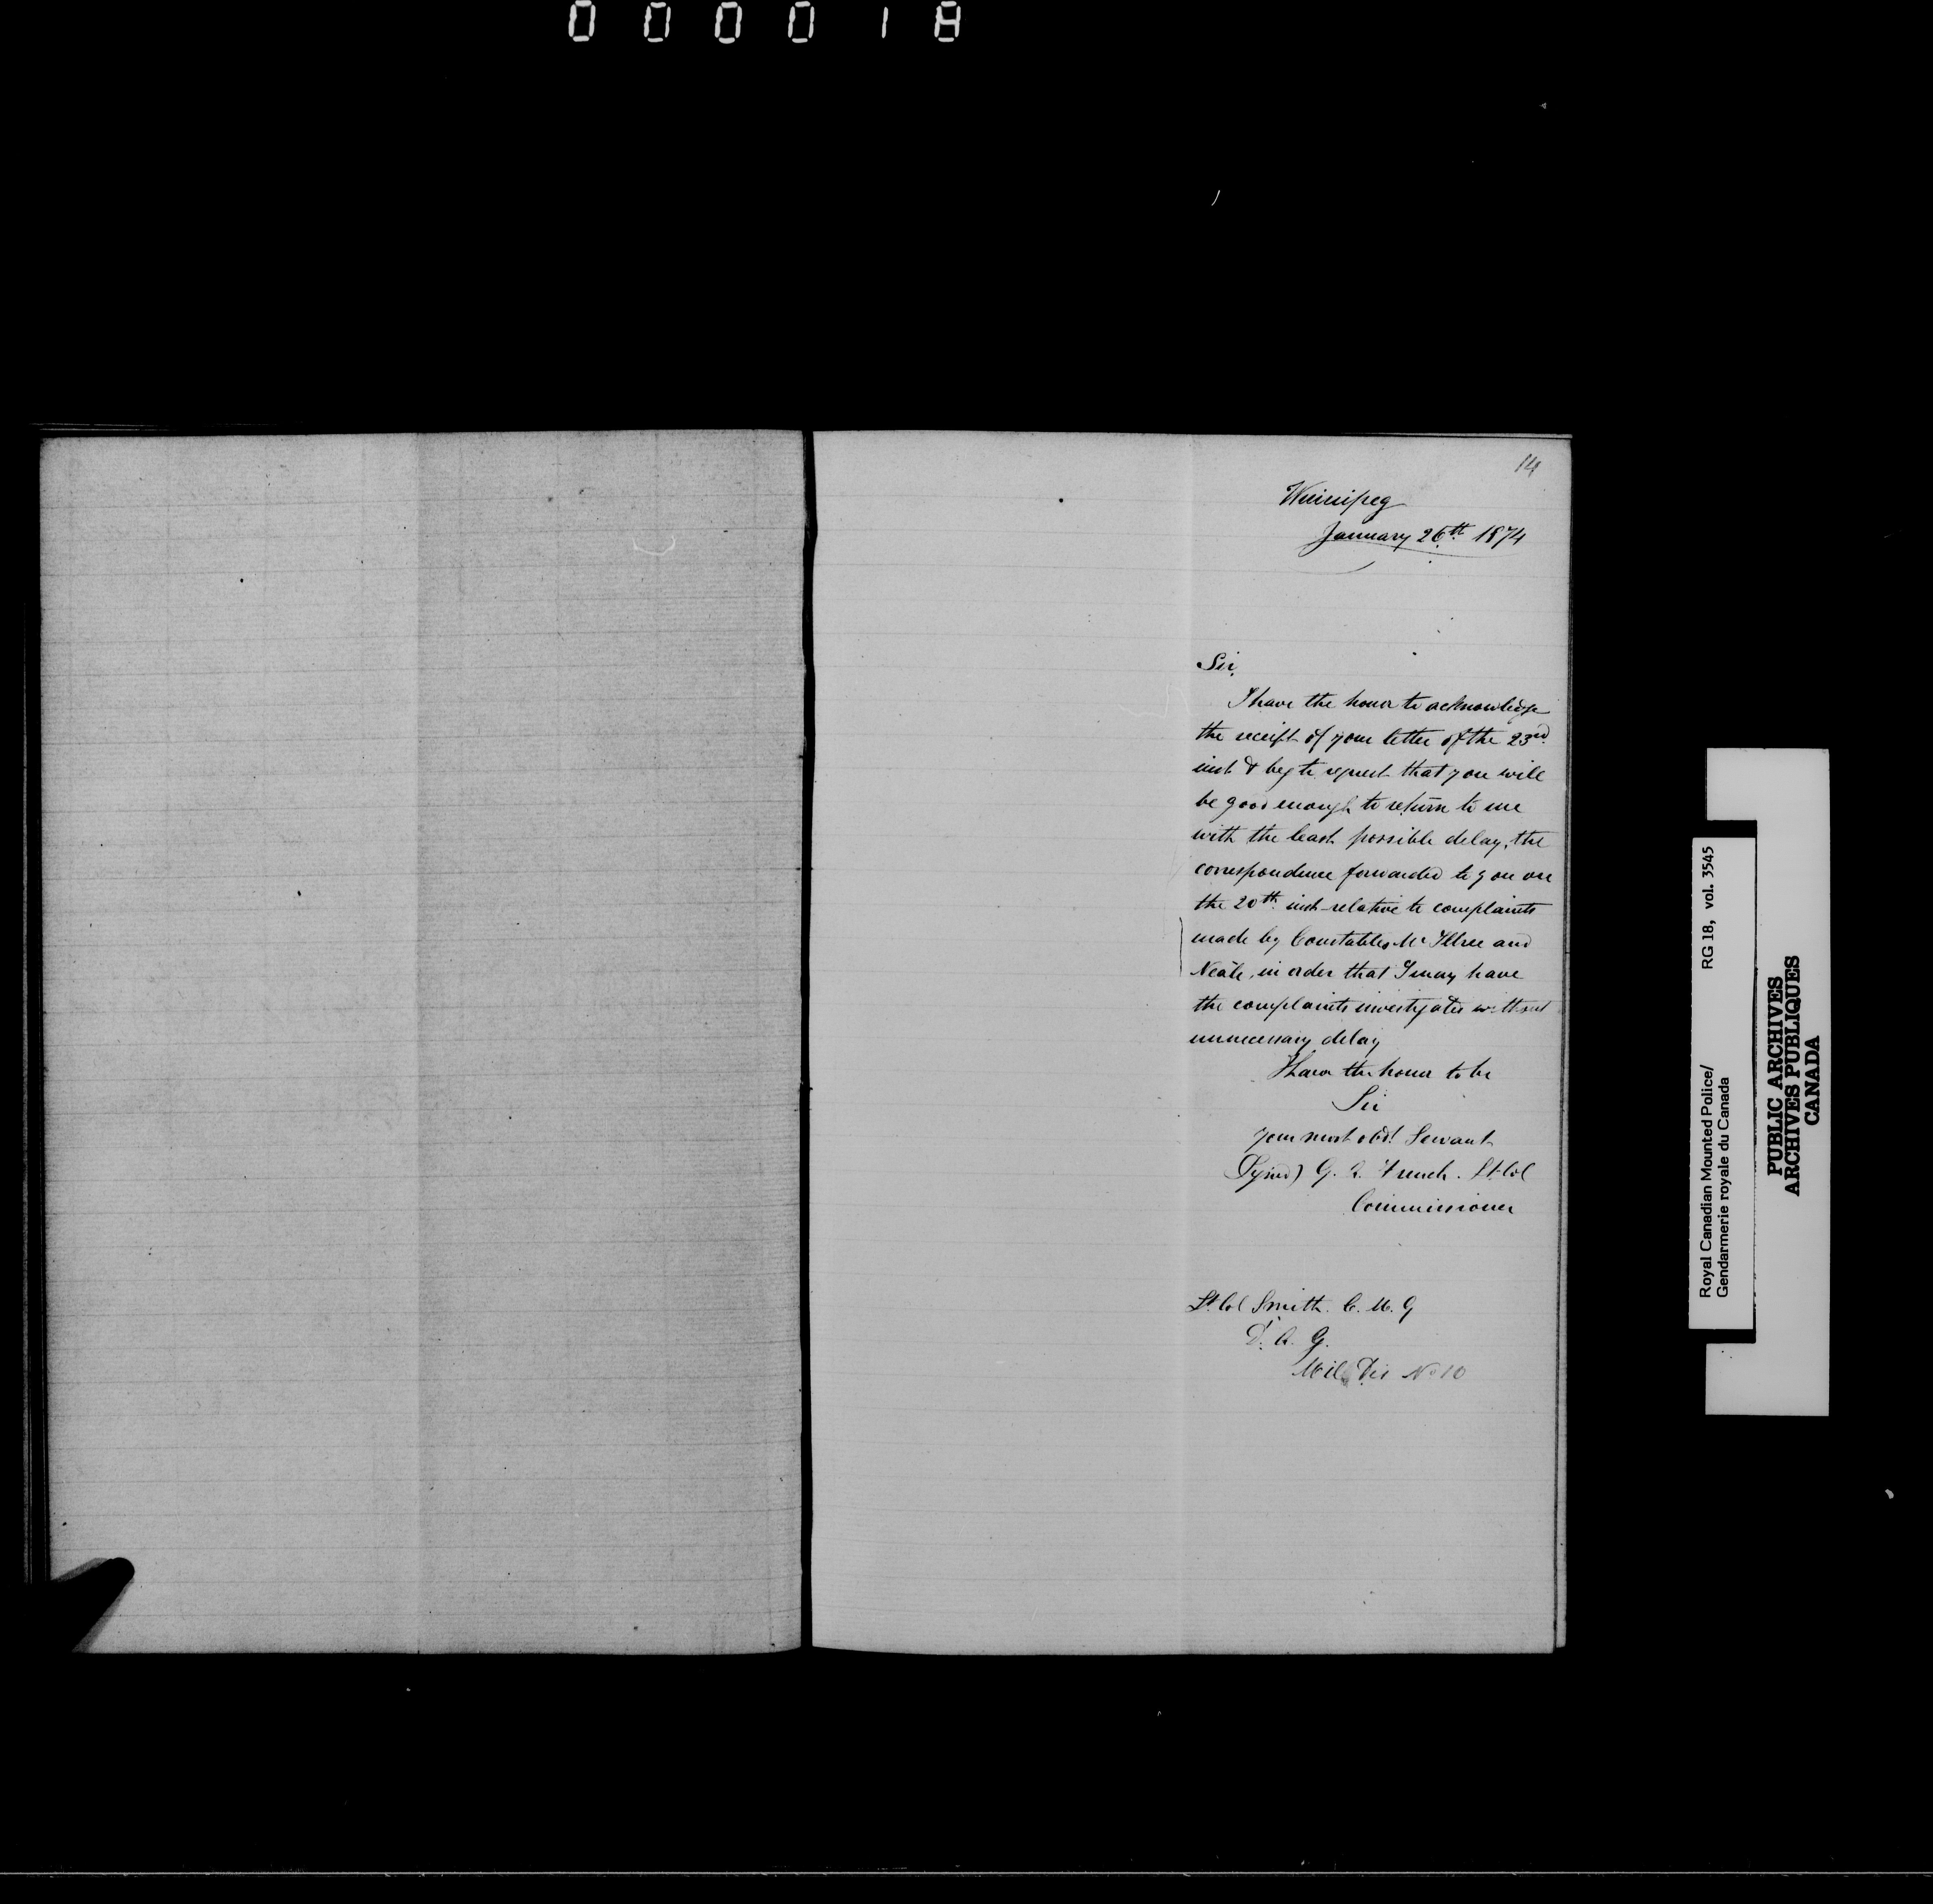 000018
14
Winnipeg
January 26th 1874
Sir,
I have the honor to acknowledge
the receipt of your letter of the 23rd
inst & beg to request that you will
be good enough to return to me
with the least possible delay, the
correspondence forwarded to you on
the 20th inst relative to complaints
made by Constables Mc Illree and
Neale, in order that I may have
the complaints investigated without
unnecessary delay
I have the honor to be
Sir
your most obdt Servant
(Signed) G. A. French. Lt Col
Commissioner
Lt Col Smith. C. M. G
D. A. G.
Mil Dis No 10
Royal Canadian Mounted Police/
Gendarmerie royale du Canada
RG 18, vol. 3545
PUBLIC ARCHIVES
ARCHIVES PUBLIQUES
CANADA